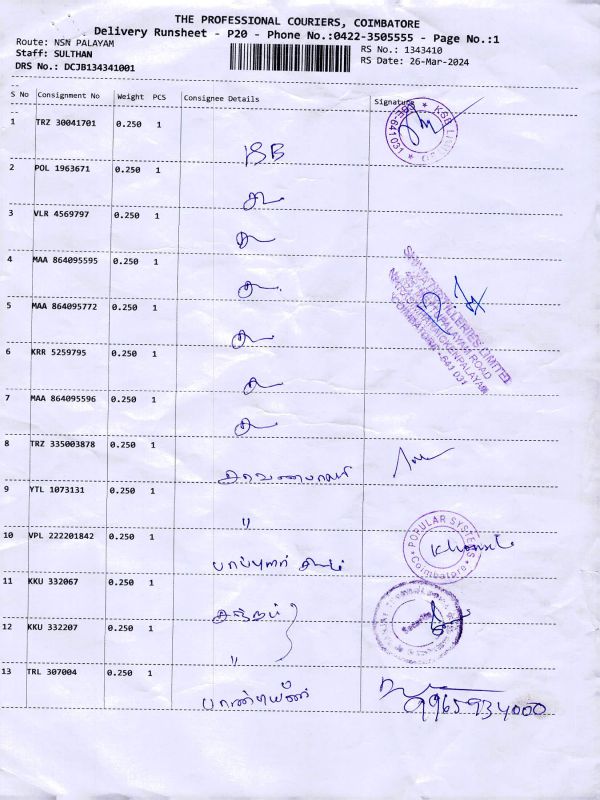 THE PROFESSIONAL COURIERS, COIMBATORE
Delivery Runsheet - P20 - Phone No.:0422-3505555 - Page No.:1
Route: NSN PALAYAM
Staff: SULTHAN
DRS No.: DCJB134341001
RS No.: 1343410
RS Date: 26-Mar-2024
S No Consignment No Weight PCS Consignee Details Signature
1 TRZ 30041701 0.250 1
KSB
2 POL 1963671 0.250 1
3 VLR 4569797 0.250 1
4 MAA 864095595 0.250 1
5 MAA 864095772 0.250 1
6 KRR 5259795 0.250 1
7 MAA 864095596 0.250 1
8 TRZ 335003878 0.250 1
9 YTL 1073131 0.250 1
"
10 VPL 222201842 0.250 1
POPULAR SYSTEMS
Coimbatore
பாப்புலர்
11 KKU 332067 0.250 1
Security
12 KKU 332207 0.250 1
"
13 TRL 307004 0.250 1
பாண்டியன்
9965934000